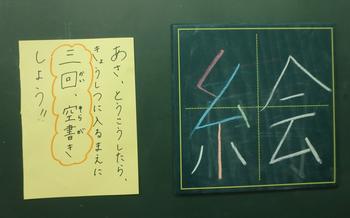 あさ、とうこうしたら、
きょうしつに入るまえに
三回、空書き
かい そらが
しょう!!
絵